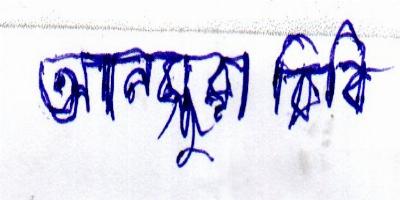 আনজুরা বিবি